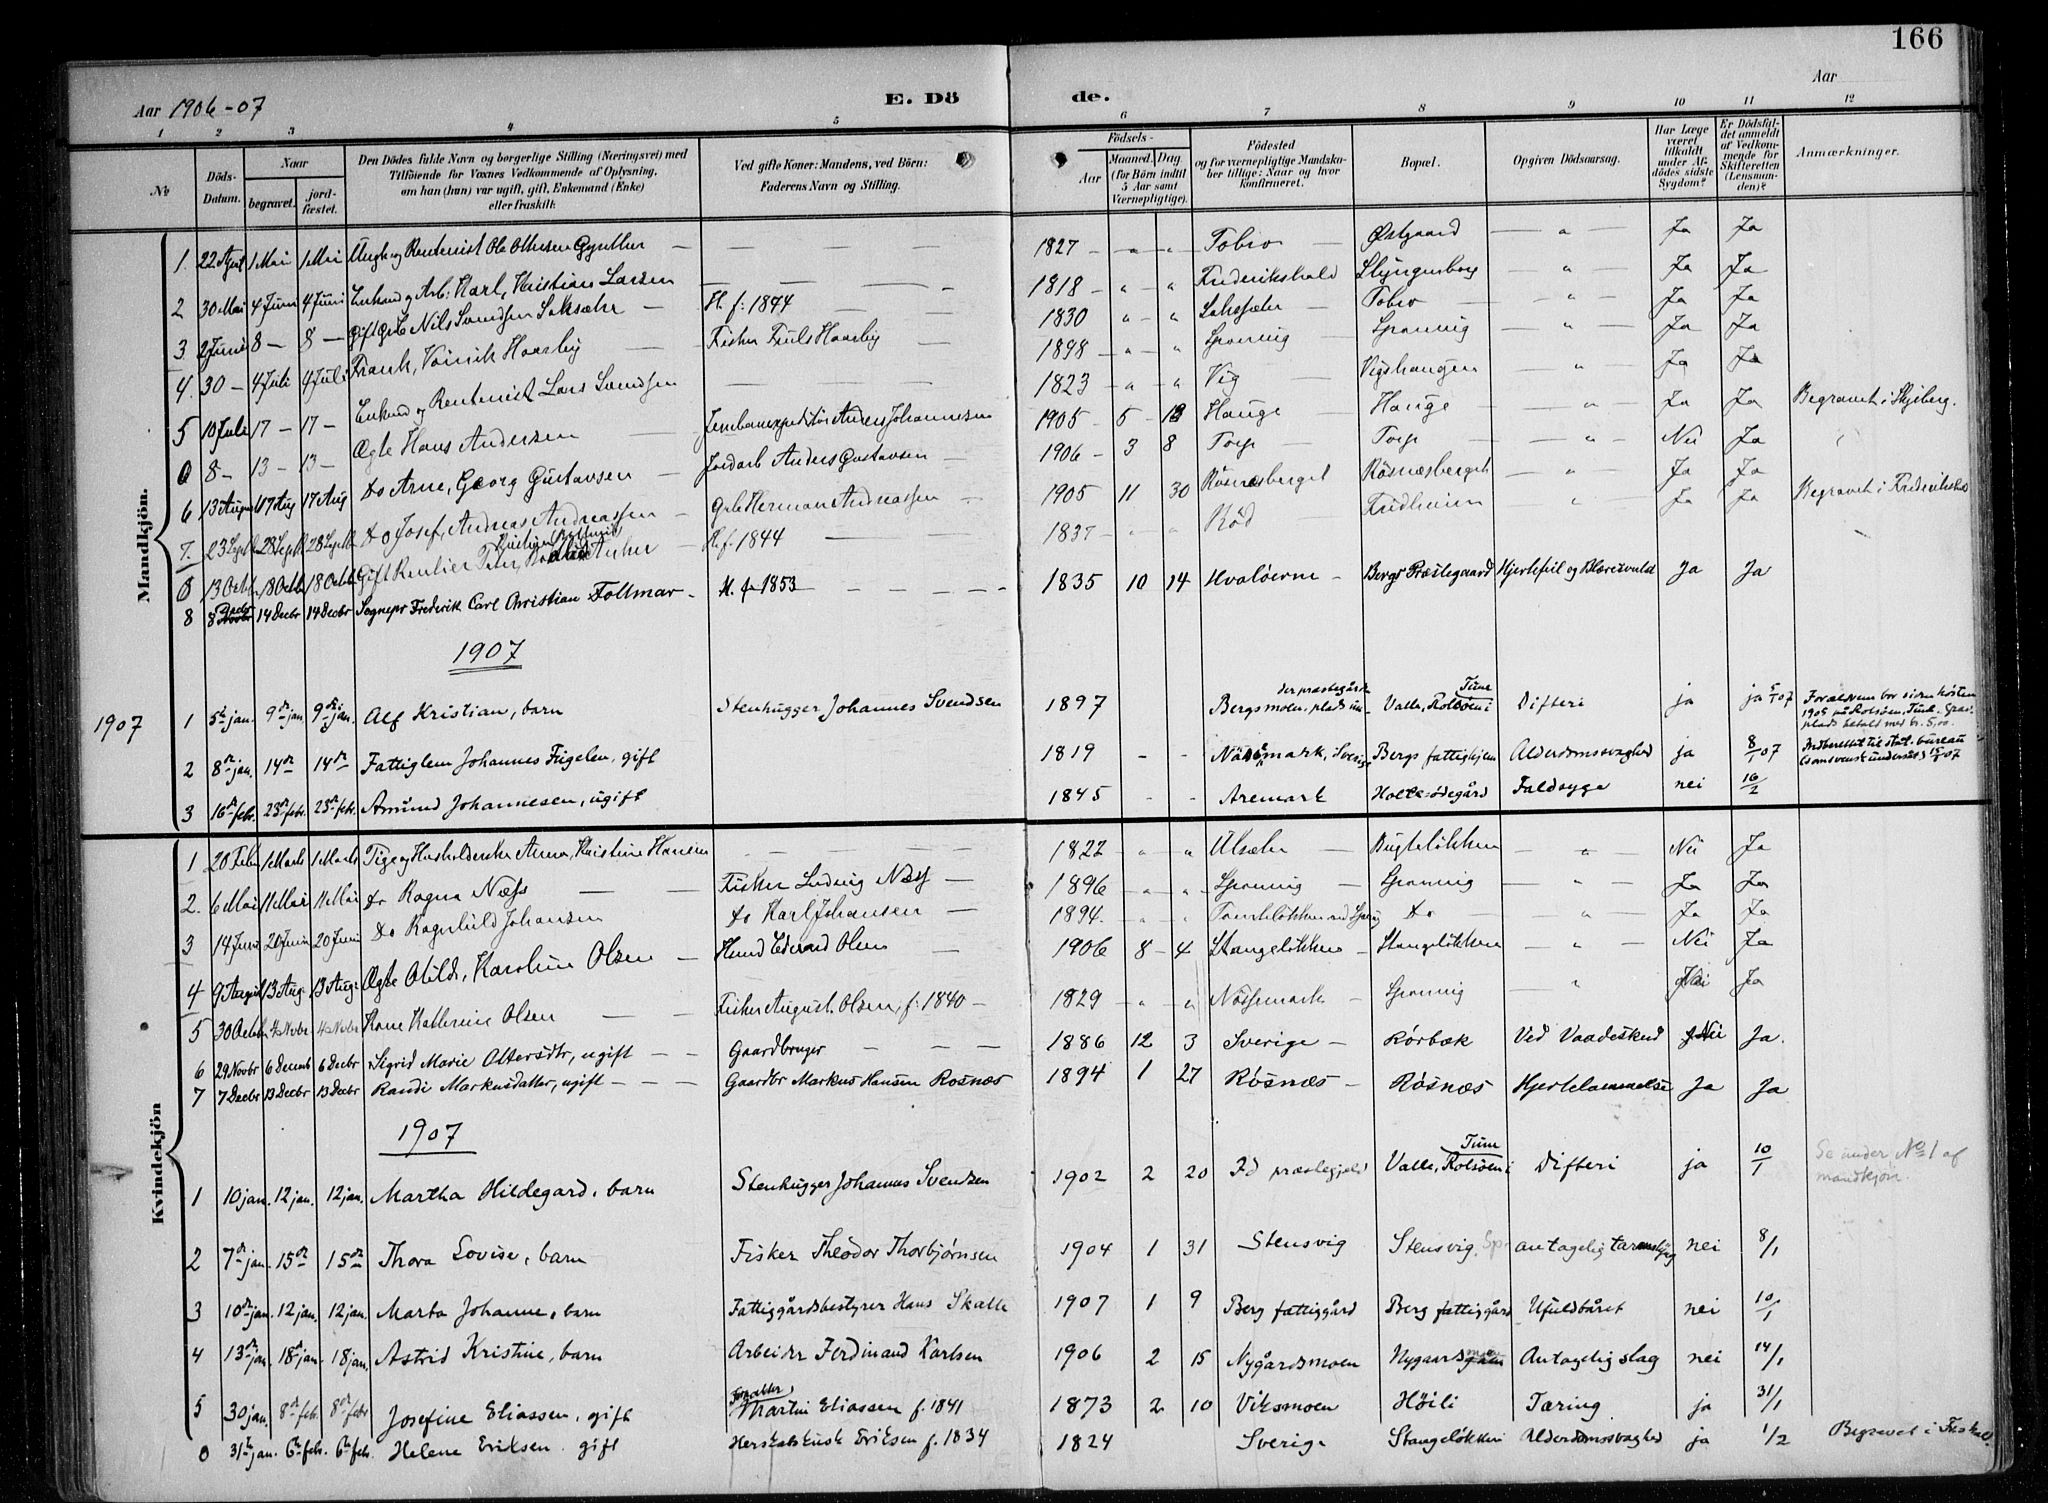 166
Aar 1906-07
E. Dö
de.
Aar
1 2 3 4 5 6 7 8 9 10 11 12
No
Döds-Datum.
Naar
begravet.
jord-fæstet.
Den Dödes fulde Navn og borgerlige Stilling (Næringsvei) med Tilföiende for Voxnes Vedkommende af Oplysning, om han (hun) var ugift, gift, Enkemand (Enke) eller fraskilt.
Ved gifte Koner: Mandens, ved Börn: Faderens Navn og Stilling.
Födsels-
Aar
Maaned. Dag
(for Börn indtil 5 Aar samt Værnepligtige).
Födested og for værnepligtige Mandskaber tillige: Naar og hvor konfirmeret.
Bopæl.
Opgiven Dödsaarsag.
Har Læge været tilkaldt under Afdödes sidste Sygdom?
Er Dödsfaldet anmeldt af Vedkommende for Skifteretten (Lensmanden)?
Anmærkninger.
Mandkjön.
1. 22 April 1 Mai 1 Mai Ungk og Rentenist Ole Othesen — — 1827 - " " Tobro — Østgaard — " — Ja Ja
2 30 Mai 4 Juni 4 Juni Enkemd og Arb: Karl, Kristian Larsen — — 1818 - " " Frederikshald — " — Ja Ja
3 2 Juni 8 — 8 — Gift Nils Svendsen — H. f. 1844 — 1830 " " — Tobro — " — Ja Ja
4. 30 — 4 Juli 4 Juli Frank, Haarby — Fisker Haarby — 1898 - " " Sponvig — Sponvig — " — Ja Ja
5 10 Juli 17 — 17 — Enkemd og Rentenist Lars Svendsen — 1823 - " " Vig — Vigshaugen — " — Ja Ja
0 8 - 13 - 13 - Ægte Hans Andersen — Anders Johannesen 1905 - 5 - Hauge — Hauge — " — Ja Ja Begravet i Skjeberg.
6 13 August 17 Aug 17 Aug do Arne, Georg Gustavsen — Jordarb Anders Gustavsen — 1906 - 3 8 Torp — Torp — " — Nei Ja
7. 23 Septb 28 Septb 28 Septb do Josef, Andreas Andreassen — Herman Andreassen — 1905 11 30 Røsnæsberget — Røsnæsberget — " — Ja Ja
0 13 Octbr 18 Octbr 18 Octbr Gift Rentier Peter, Anker — H. f. 1844 — 1837 - " " Rød Fredheim " — Ja Ja Begravet i Frederikshald
8 8 Decbr 14 Decbr 14 Decbr Sognepr Frederik Carl Christian Follmar - H. f. 1853 - - - 1835 10 14 Hvaløerne - Bergs Præstegaard Hjertefeil og Ja Ja
1907
1907 1 5te jan. 9de jan. 9de jan. Alf Kristian, barn Stenhugger Johannes Svendsen 1897 Bergsmoen, plads un- der præstegården Valle, Rolsøen i Tune Difteri ja ja 5/1 07 Forældrene bor siden høsten 1905 på Rolsøen, Tune. Gravplads betalt med kr. 5,00.
2 8de jan. 14de 14de Fattiglem Johannes Fugelen, gift 1819 - - Nössemark, Sverige Bergs fattighjem Alderdomssvaghed ja 8/1 07 Indberettet til stat. bureau (som svensk undersåt) 15/1 07
3 16de febr. 23de febr. 23de febr. Amund Johannesen, ugift 1845 - - Aremark Holte-ødegård Faldsyge nei 16/2
Kvindekjön
1 20 Febr 1 Marts 1 Marts Pige og Husholderske Anne, Kristine Hansen — — 1822 " " — Bugteløkken — " — Nei Ja
2. 6 Mai 11 Mai 11 Mai do Ragna Næss — — Fisker Ludvig Næss — 1896 - " " Sponvig — Sponvig — " — Ja Ja
3 14 Juni 20 Juni 20 Juni do Ragnhild Johansen do Karl Johansen — 1894. " " do — " — Ja Ja
4 9 August 13 Aug. 13 Aug. Ægte Otilde, Karoline Olsen — Edvard Olsen — 1906 8 - 4 Stangeløkken - Stangeløkken — " — Nei Ja
5 30 Octobr 4 Novbr 4 Novbr Kone Kathrine Olsen — Fisker August Olsen, f: 1840 - 1829 - " " Nössemark — Sponvig — " — Nei Ja
6 29 Novbr 6 Decemb 6 Decbr Sigrid Marie Ottersdtr, ugift - - Gaardbruger - - - 1886 12 3 Sverige - Rørbæk Ved Vaadeskud Nei Ja.
7 7 Decbr 13 Decbr 13 Decbr Randi Markusdatter, ugift - - - Gaardbr Markus Hansen Rosnæs 1894 1 27 Røsnæs - Røsnæs Hjertelammelse Ja Ja
1907
1 10 jan. 12 jan. 12 jan. Martha Hildegard, barn Stenhugger Johannes Svendsen 1902 2 20 Id præstegjeld Valle, Rolsøen i Tune Difteri ja 10/1 Se under No 1 af mandkjön.
2 7de jan. 15de 15de Thora Lovise, barn Fisker Theodor Thorbjørnsen 1904 1 31 Stensvig Stensvig, Sp. antagelig tarmslyng nei 8/1
3 10de jan. 12 jan. 12 jan. Marta Johanne, barn Fattiggårdsbestyrer Hans Skatte 1907 1 9 Berg fattiggård Berg fattiggård Ufuldbåret nei 10/1
4 13de jan. 18de jan. 18 jan. Astrid Kristine, barn Arbeider Ferdinand Karlsen 1906 2 15 Nygårdsmoen Nygaardsmoen Antagelig slag nei 14/1
5 30 jan. 8de feb. 8de febr Josefine Eliassen, gift Forvalter Martin Eliassen f. 1841 1873 2 10 Viksmoen Höili Tæring ja 31/1
0 31te jan. 6te feb. 6te feb. Helene Eriksen, gift Eriksen f. 1834 1824 Sverige Stangeløkken Alderdomssvaghed ja 1/2 Begravet i Fr.hald.